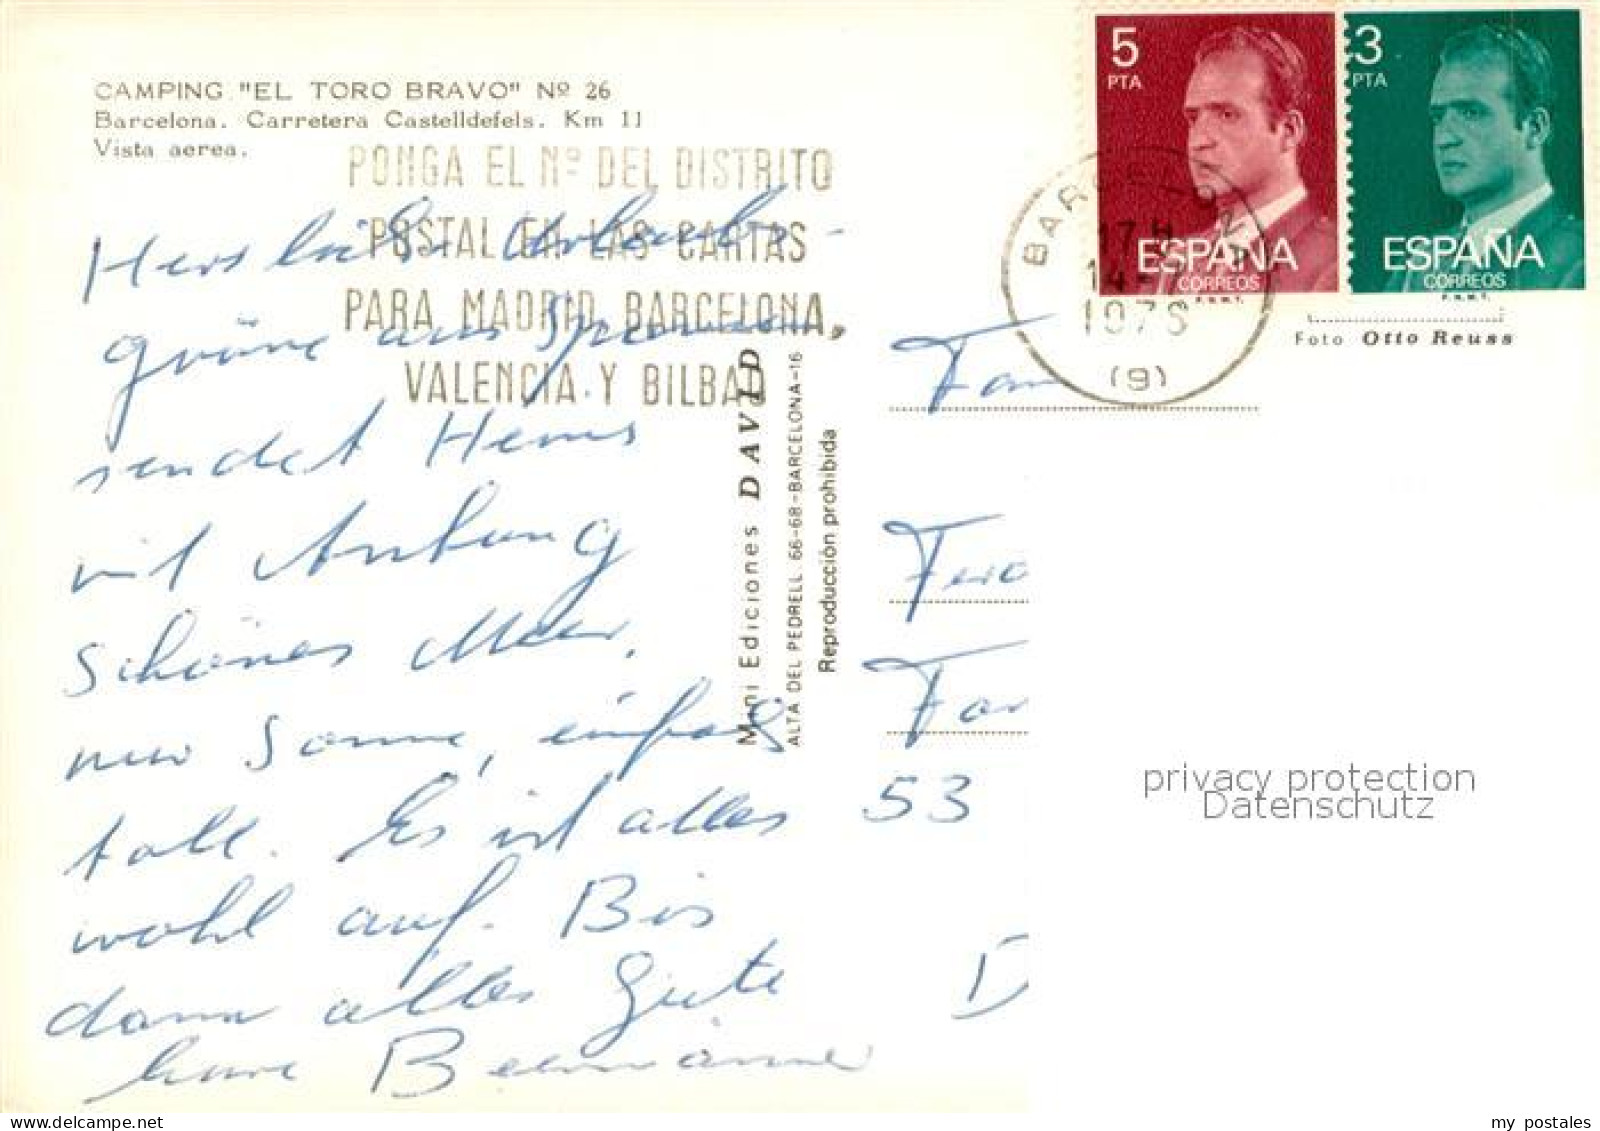 CAMPING "EL TORO BRAVO" Nº 26
Barcelona. Carretera Castelldefels. Km 11
Vista aerea.
PONGA EL Nº DEL DISTRITO
POSTAL EN LAS CARTAS
PARA MADRID, BARCELONA,
VALENCIA Y BILBAO
5
PTA
ESPAÑA
CORREOS
F.N.M.T.
3
PTA
ESPAÑA
CORREOS
F.N.M.T.
BARCELONA
17 H
14
1976
(9)
Foto Otto Reuss
Herzliche Urlaubs-
grüße aus Spanien
sendet Heinz
mit Anhang
Schönes Meer,
nur Sonne, einfach
toll. Es ist alles
wohl auf. Bis
dann alles Gute
Mini Ediciones DAVID
ALTA DEL PEDRELL 66-68-BARCELONA-16
Reproducción prohibida
Fam
53
D
privacy protection
Datenschutz
my postales